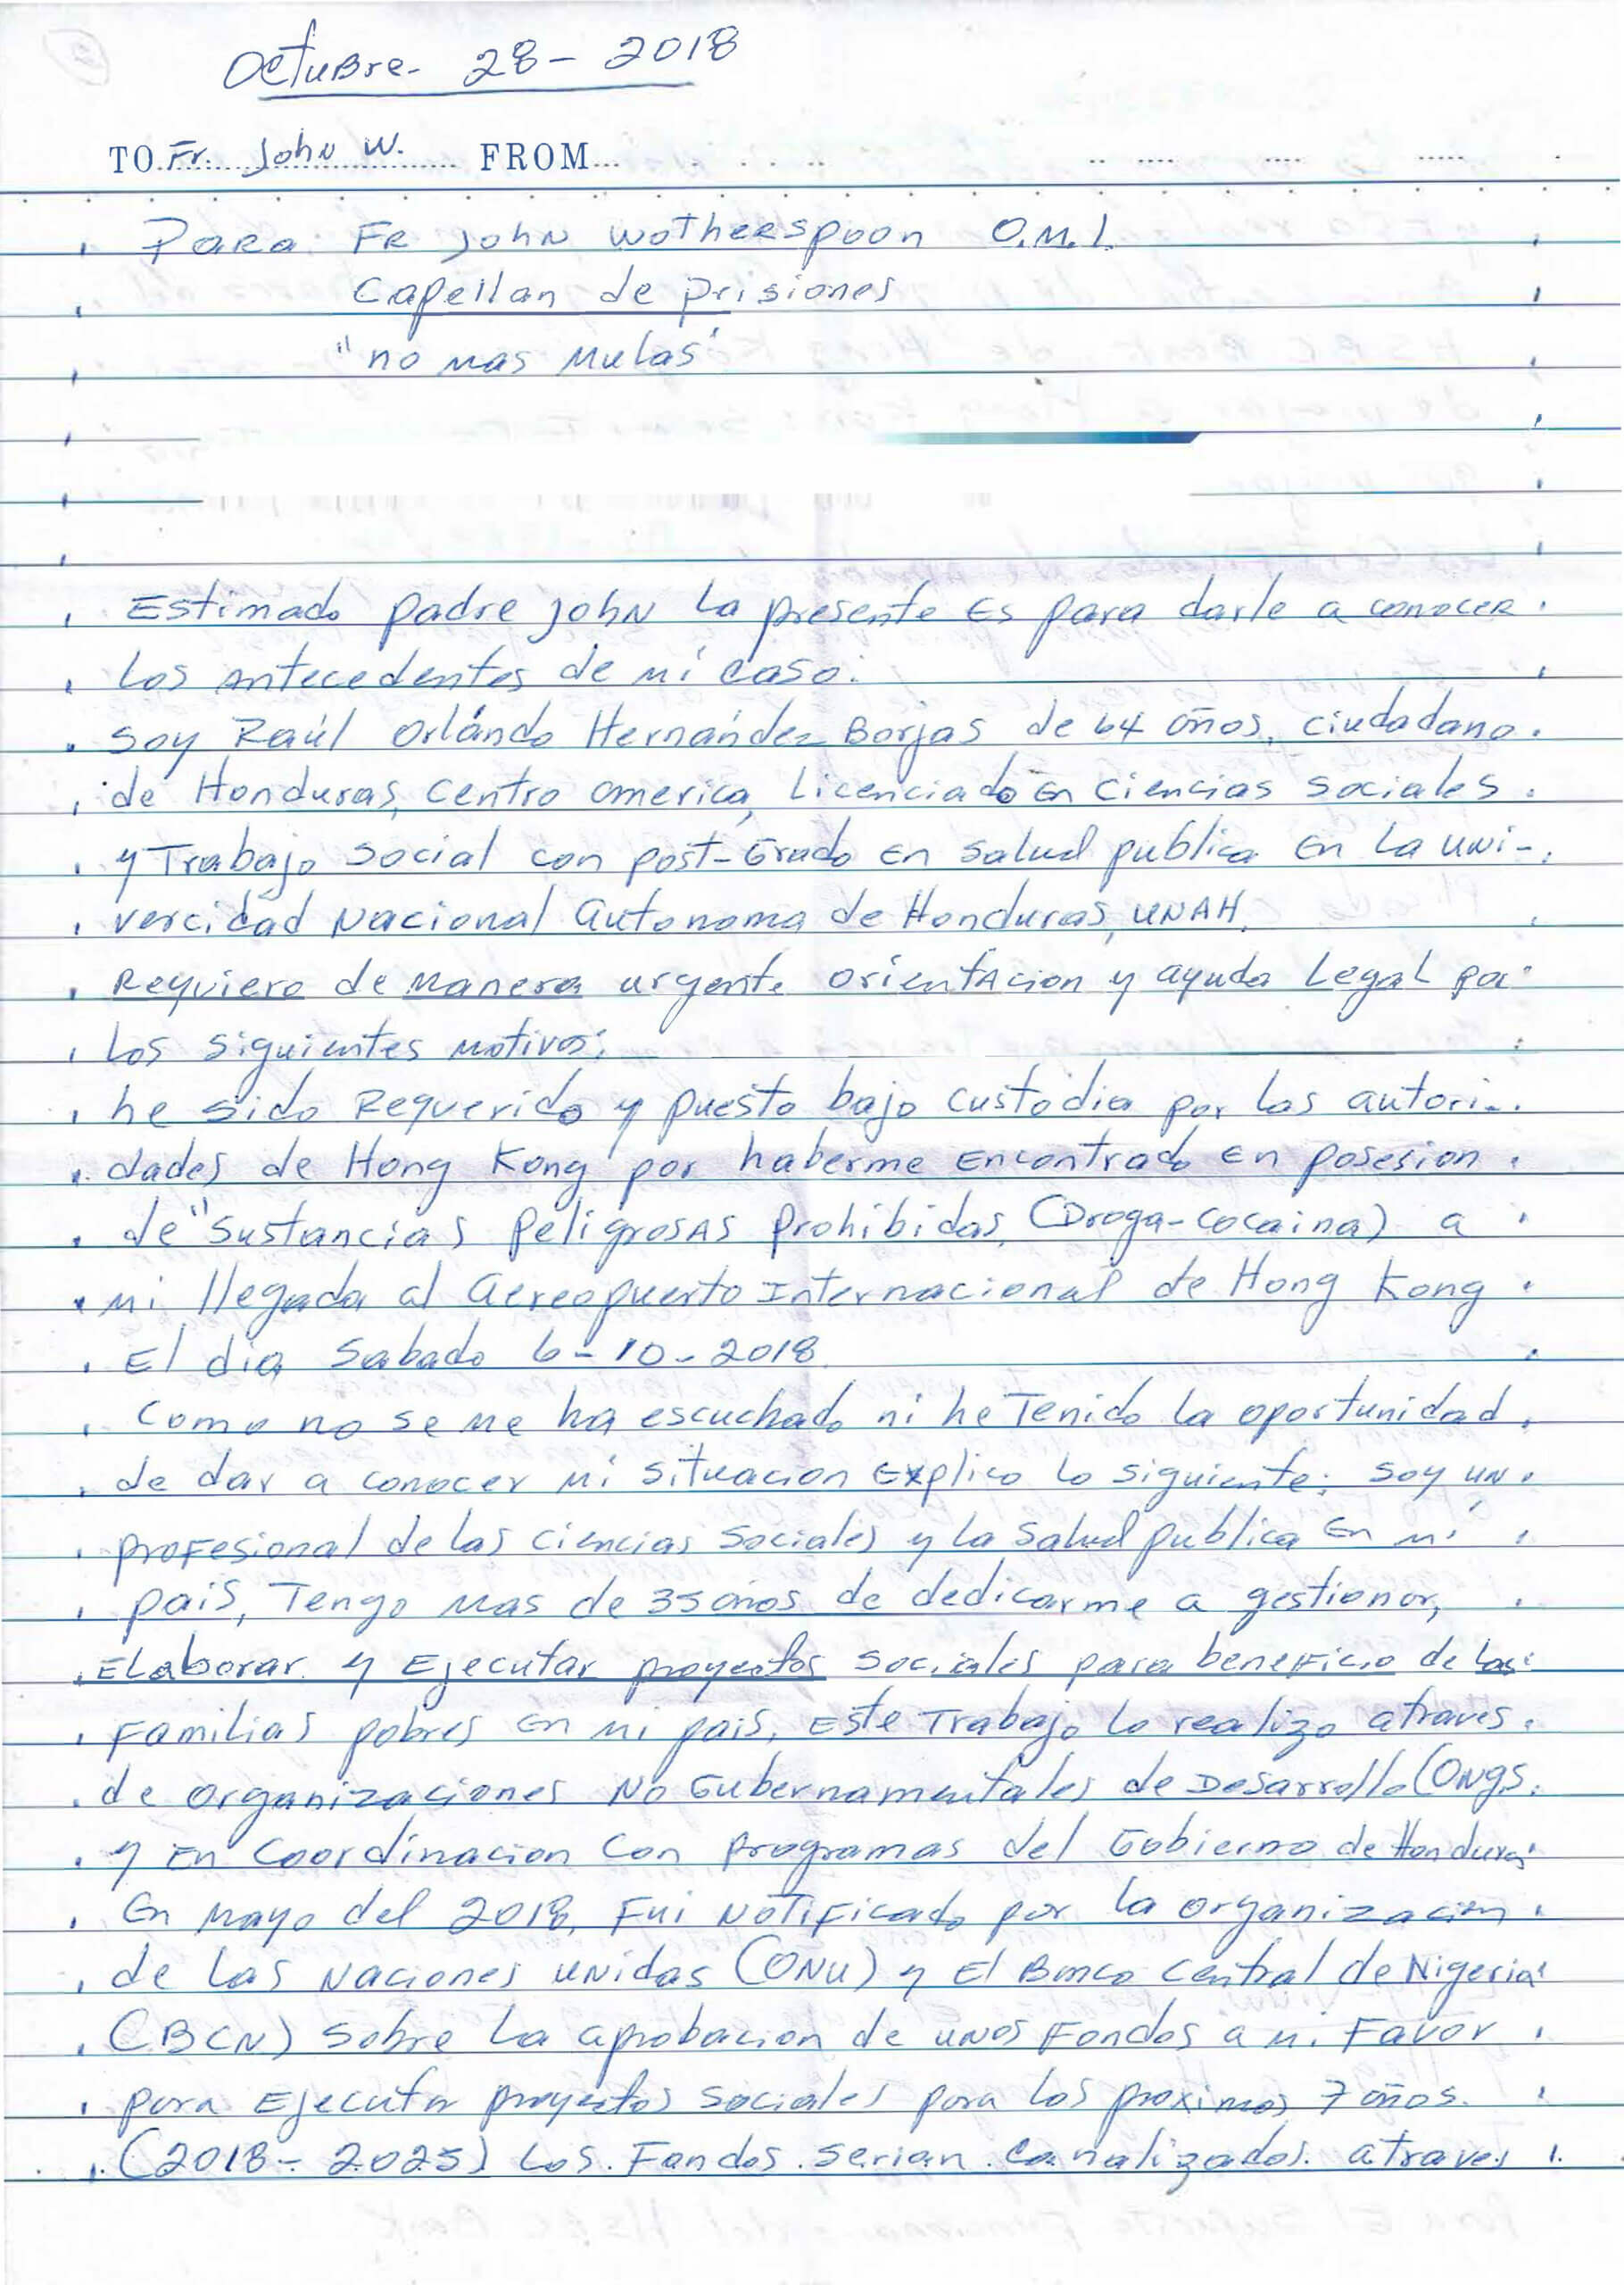 Octubre - 28 - 2018
TO Fr. John W. FROM
Para: FR John Wotherspoon O.M.I.
Capellan de prisiones
"no mas mulas"
Estimado padre John La presente Es para darle a conocer
Los antecedentes de mi caso.
Soy Raúl Orlándo Hernández Borjas de 64 años, ciudadano
de Honduras, Centro America, Licenciado En Ciencias Sociales
y Trabajo Social con post-Grado En Salud publica En La uni-
vercidad Nacional Autonoma de Honduras, UNAH.
Requiero de manera urgente orientacion y ayuda Legal por
Los siguientes motivos:
he sido Requerido y puesto bajo custodia por las autori-
dades de Hong Kong por haberme Encontrado En posesion
de "Sustancias Peligrosas Prohibidas, (Droga-Cocaina) a
mi llegada al Aereopuerto Internacional de Hong Kong
El dia Sabado 6-10-2018
Como no se me ha escuchado ni he Tenido la oportunidad
de dar a conocer mi situacion Explico lo siguiente: soy un
profesional de las ciencias Sociales y La Salud publica En mi
pais, Tengo mas de 35 años de dedicarme a gestionar,
Elaborar y Ejecutar proyectos sociales para beneficio de las
Familias pobres En mi pais, Este Trabajo lo realizo atraves
de Organizaciones No Gubernamentales de Desarrollo (ONGS.
y En Coordinacion Con programas del Gobierno de Honduras
En Mayo del 2018, Fui Notificado por la organizacion
de Las Naciones Unidas (ONU) y El Banco Central de Nigeria
(BCN) Sobre La aprobacion de unos Fondos a mi Favor
para Ejecutar proyectos Sociales para Los proximos 7 años.
(2018 - 2025) Los Fondos serian canalizados atraves